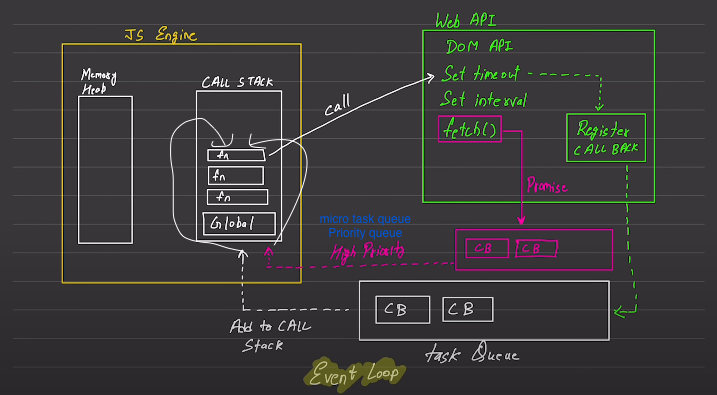 JS Engine
Memory
Heob
CALL STACK
fn
fn
fn
Global
call
Web API
DOM API
Set timeout
Set interval
fetch()
Register
CALL BACK
Promise
micro task queue
Priorty queue
High Priority
CB CB
CB CB
Add to CALL
Stack
task Queue
Event Loop